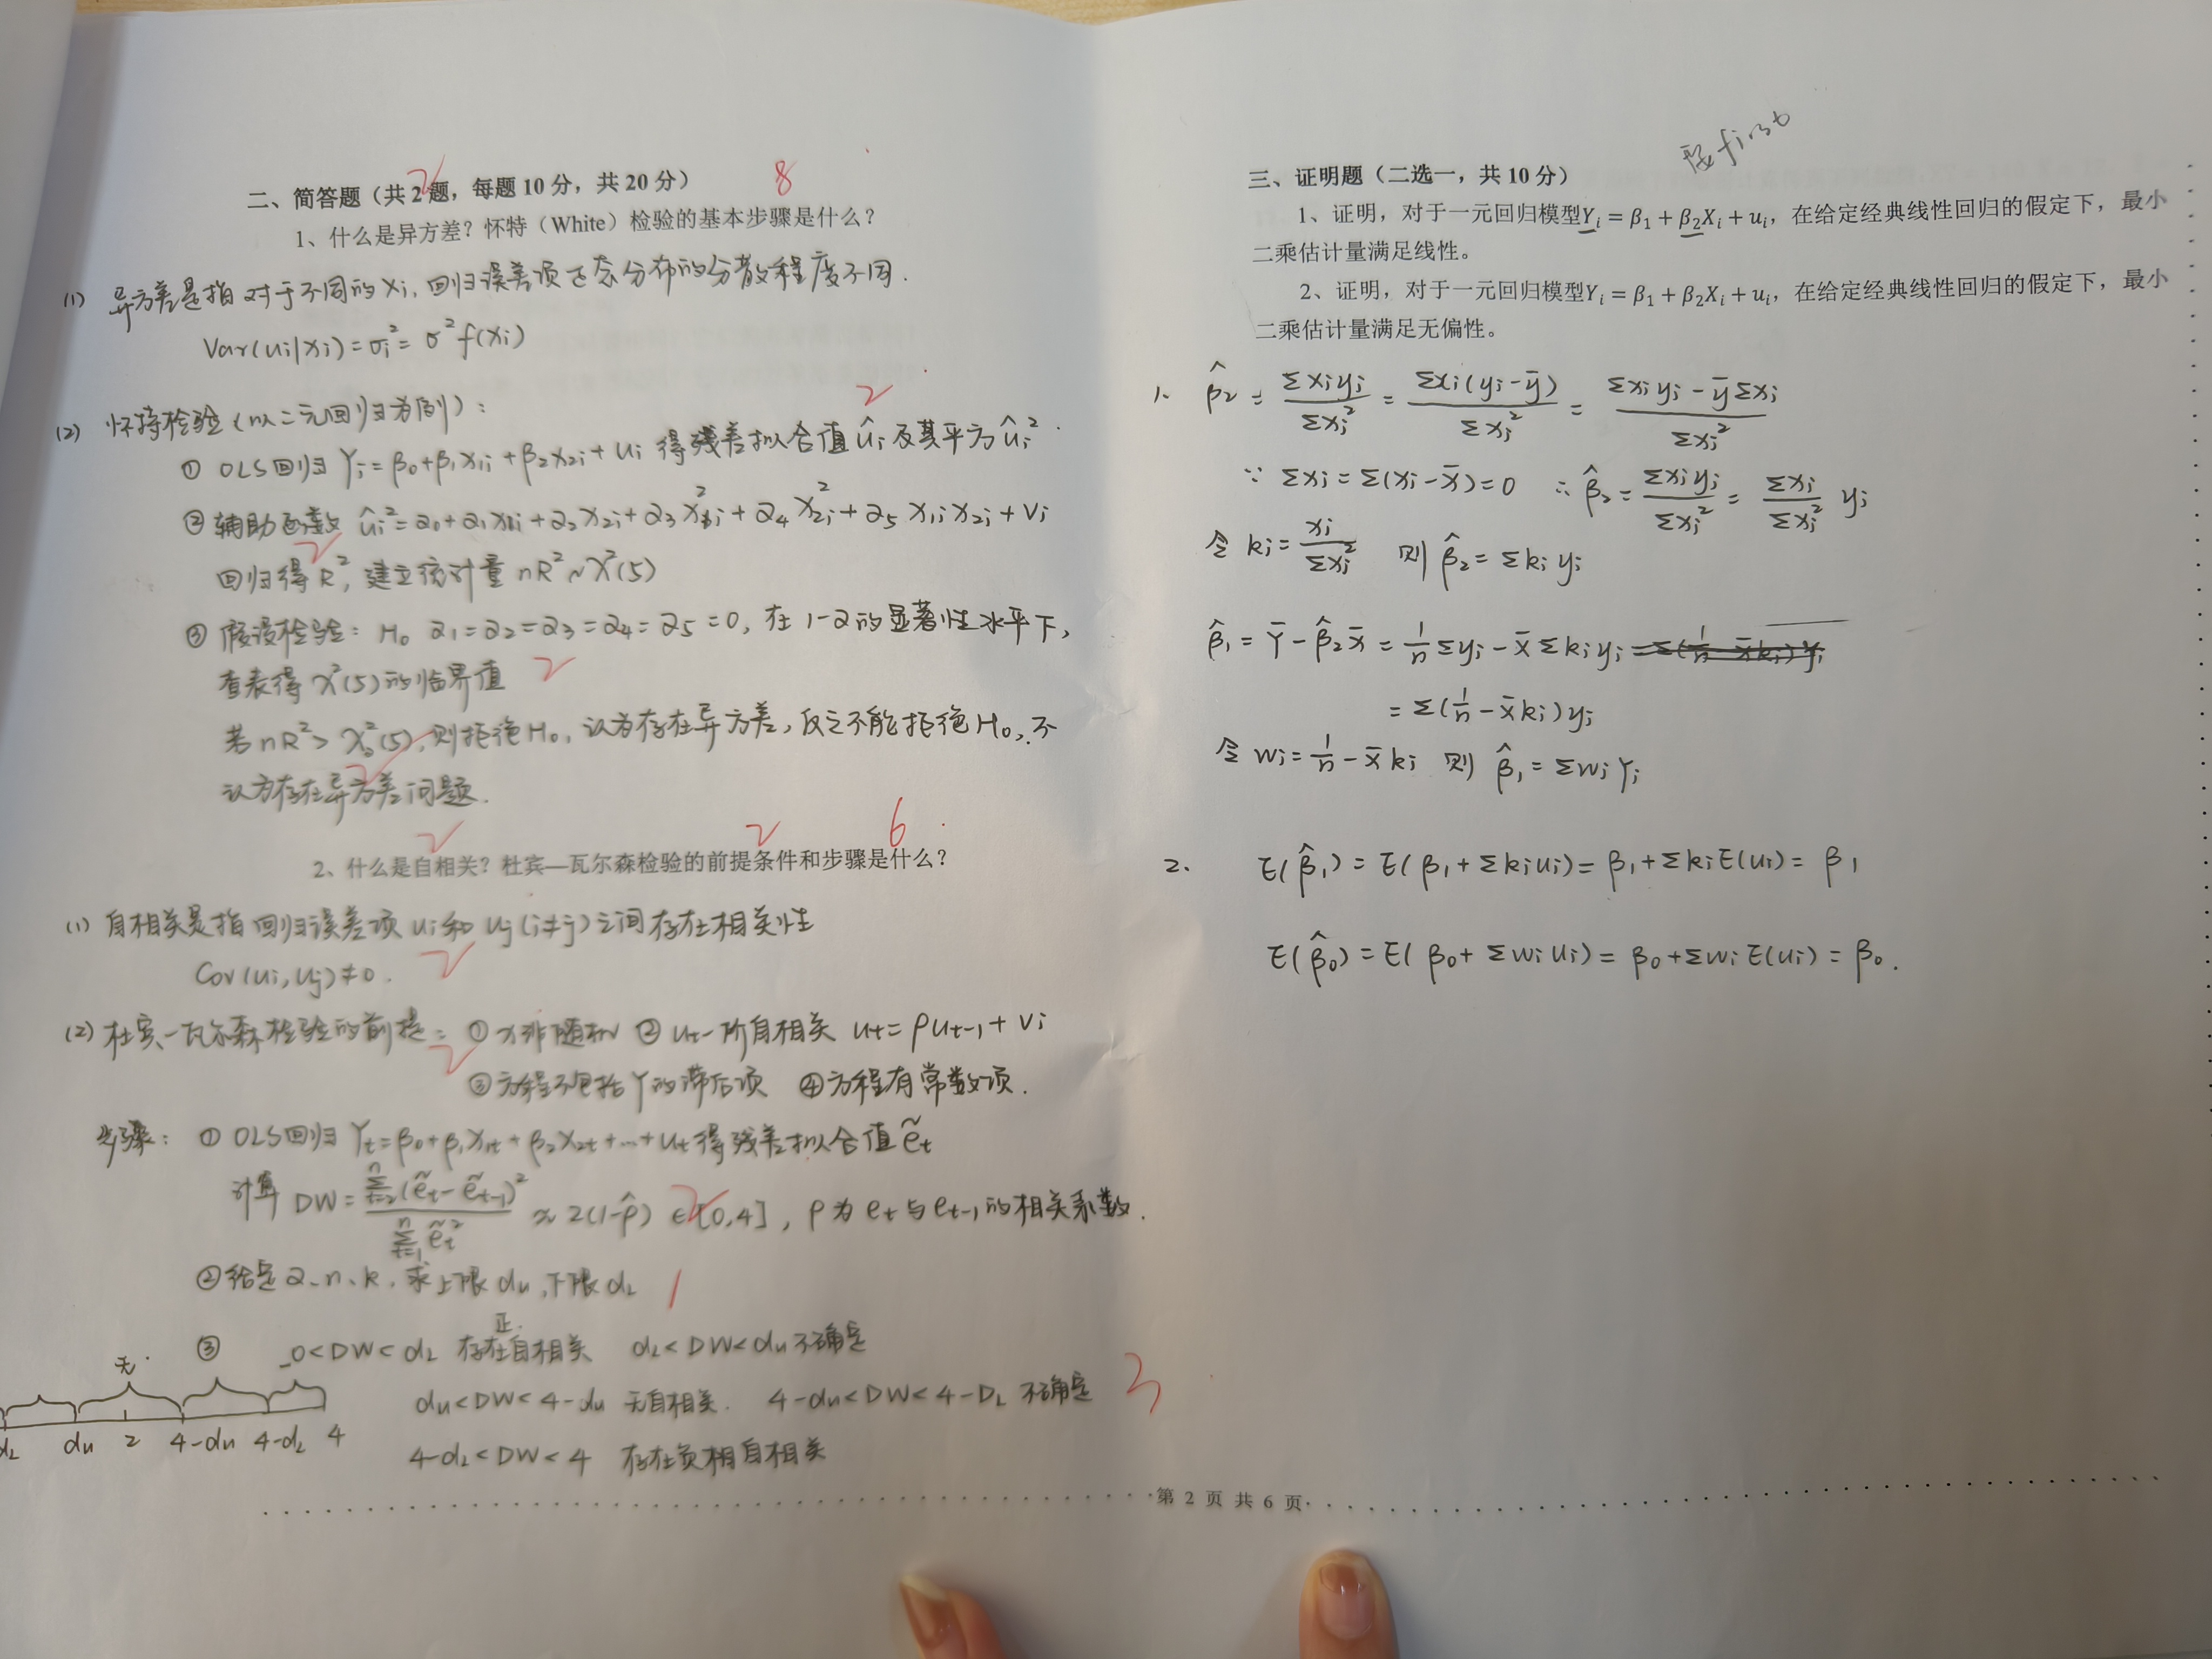 二、简答题（共2题，每题10分，共20分） 8
1、什么是异方差？怀特（White）检验的基本步骤是什么？
(1) 异方差是指对于不同的Xi, 回归误差项正态分布的分散程度不同.
Var(ui|xi)=σi²=σ²f(xi)
(2) 怀特检验(以二元回归为例):
2
① OLS回归 Yi=β0+β1X1i+β2X2i+ui 得残差拟合值ûi及其平方ûi²
② 辅助函数 ûi²=α0+α1X1i+α2X2i+α3X1i²+α4X2i²+α5X1iX2i+vi
回归得R², 建立统计量 nR²~χ²(5)
③ 假设检验: H0 α1=α2=α3=α4=α5=0, 在1-α的显著性水平下,
查表得χ²(5)的临界值 2
若nR²>χα²(5), 则拒绝H0, 认为存在异方差, 反之不能拒绝H0, 不
认为存在异方差问题.
2 2 6
2、什么是自相关？杜宾—瓦尔森检验的前提条件和步骤是什么？
(1) 自相关是指回归误差项ui和uj(i≠j)之间存在相关性
Cov(ui,uj)≠0. 2
(2) 杜宾-瓦尔森检验的前提: ① x非随机 ② ut一阶自相关 ut=ρut-1+vi
③方程不包括Y的滞后项 ④方程有常数项.
步骤: ① OLS回归 Yt=β0+β1X1t+β2X2t+...+ut 得残差拟合值ẽt
计算 DW=Σ(t=2→n)(ẽt-ẽt-1)²/Σ(t=1→n)ẽt² ≈ 2(1-ρ̂) ∈[0,4], ρ为et与et-1的相关系数.
②给定α、n、k, 求上限du, 下限dL 1
③ 0<DW<dL 存在正自相关 dL<DW<du 不确定
du<DW<4-du 无自相关. 4-du<DW<4-DL 不确定 3
4-dL<DW<4 存在负相自相关
无
dL du 2 4-du 4-dL 4
first
三、证明题（二选一，共10分）
1、证明，对于一元回归模型Yi = β1 + β2Xi + ui，在给定经典线性回归的假定下，最小
二乘估计量满足线性。
2、证明，对于一元回归模型Yi = β1 + β2Xi + ui，在给定经典线性回归的假定下，最小
二乘估计量满足无偏性。
1、 β̂2 = Σxiyi/Σxi² = Σxi(yi-ȳ)/Σxi² = (Σxiyi-ȳΣxi)/Σxi²
∵ Σxi=Σ(xi-x̄)=0 ∴ β̂2=Σxiyi/Σxi²=Σxi/Σxi² yi
令 ki=xi/Σxi² 则 β̂2=Σkiyi
β̂1=Ȳ-β̂2x̄=1/n Σyi-x̄Σkiyi=Σ(1/n-x̄ki)Yi
=Σ(1/n-x̄ki)yi
令 wi=1/n-x̄ki 则 β̂1=ΣwiYi
2. E(β̂1)=E(β1+Σkiui)=β1+ΣkiE(ui)=β1
E(β̂0)=E(β0+Σwiui)=β0+ΣwiE(ui)=β0.
第 2 页 共 6 页